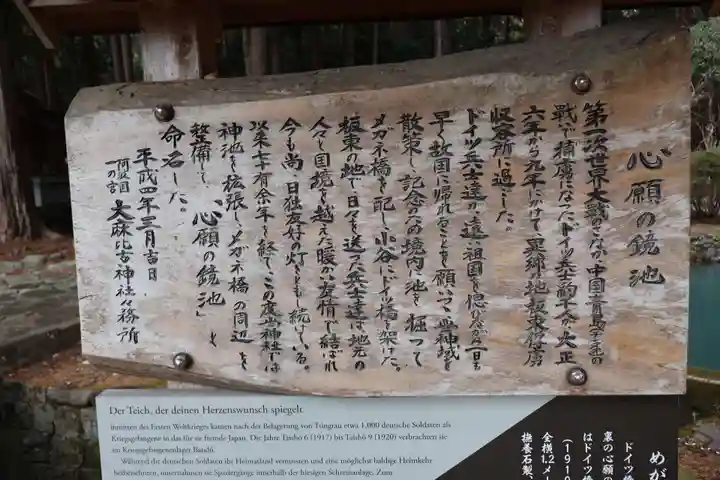 心願の鏡池
第一次世界大戦のさなか中国青島での
戦いで捕虜になったドイツ兵士約一千人が大正
六年から九年にかけて異郷の地板東俘虜
収容所に過した。
ドイツ兵士達が遠い祖国を偲びながら一日も
早く故国に帰れることを願いつつ当神域を
散策し記念のため境内に池を掘って
メガネ橋を配し小谷にドイツ橋を架けた。
板東の地で日々を送った兵士達は地元の
人々と国境を越えた暖かい友情で結ばれ
今も尚日独友好の灯をともし続けている。
以来七十有余年を経てこの度当神社では
神池を拡張しメガネ橋の周辺を
整備して「心願の鏡池」と
命名した。
平成四年三月吉日
阿波国一の宮 大麻比古神社々務所
Der Teich, der deinen Herzenswunsch spiegelt
Inmitten des Ersten Weltkrieges kamen nach der Belagerung von Tsingtau etwa 1,000 deutsche Soldaten als
Kriegsgefangene in das für sie fremde Japan. Die Jahre Taisho 6 (1917) bis Taishō 9 (1920) verbrachten sie
im Kriegsgefangenenlager Bandō.
Während die deutschen Soldaten ihr Heimatland vermissten und eine möglichst baldige Heimkehr
herbeisehnten, unternahmen sie Spaziergänge innerhalb der hiesigen Schreinanlage. Zum
めが
ドイツ橋
裏の心願の
はドイツ橋
(191
全横1.2メー
撫養石製、